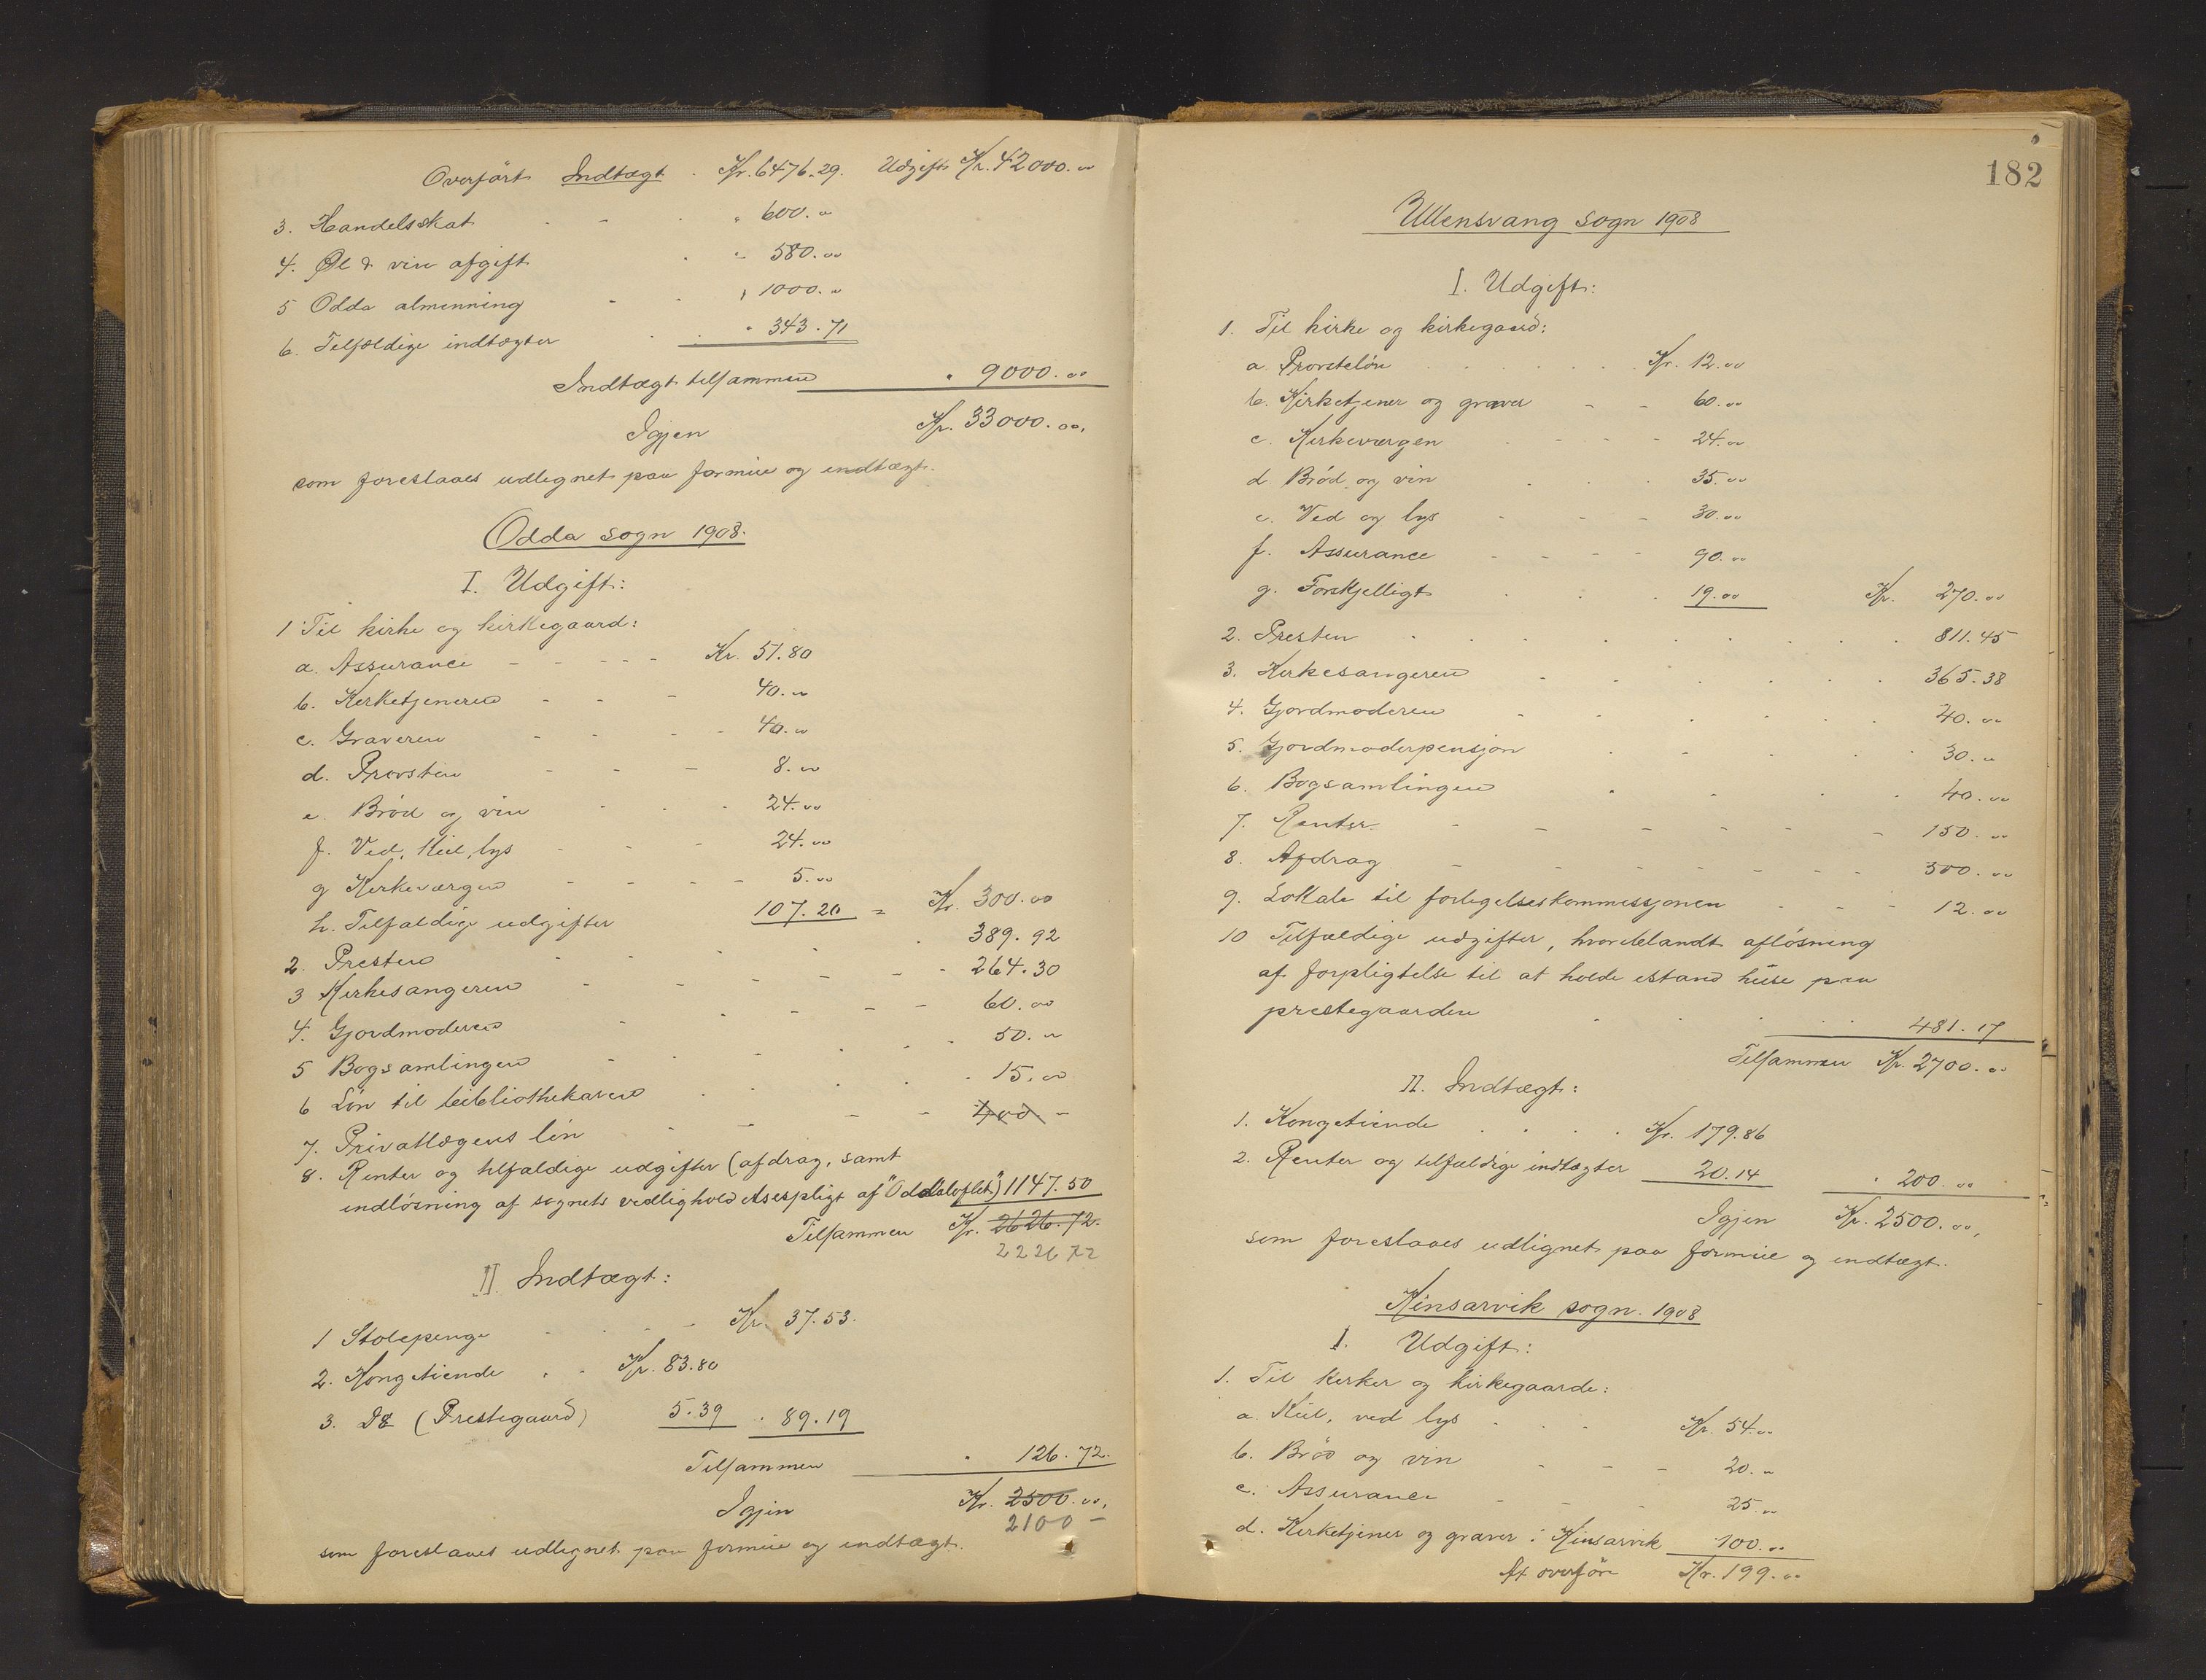 Overført Indtægt . Kr. 6476.29. Udgift Kr. 42000.00
3. Handelsskat - - " 600.00
4. Øl & vin afgift - " 580.00
5 Odda almenning - - " 1000.00
6. Telfældige indtægter - - " 343.71
Indtægt telsammen " 9000.00
Igjen Kr. 33000.00,
som foreslaaes udlignet paa formue og indtægt.
Odda sogn 1908.
I. Udgift:
1 Til kirke og kirkegaard:
a. Assurance - - - - - Kr. 51.80
b. Kirketjeneren - - - 40.00
c. Graveren - - - - 40.00
d. Provsten - - - 8.00
e. Brød og vin - - - 24.00
f. Ved, kul, lys - - - 24.00
g Kirkeværgen - - - - 5.00
h. Tilfældige udgifter 107.20 = Kr. 300.00
2. Presten - - - - 389.92
3 Kirkesangeren - - - - - 264.30
4. Gjordmoderen - - - - 60.00
5 Bogsamlingen - - - - 50.00
6 Løn til bibliothekaren - - - - 15.00
7. Privatlægens løn - - - - 400. -
8. Renter og telfældige udgifter (afdrag, samt
indløsning af sognets vedligholdelsespligt af "Oddaloftet") 1147.50
Tilsammen Kr. 2626.72.
2226 72
II. Indtægt:
1 Stolepenge - - - - Kr. 37.53.
2. Kongetiende . . Kr. 83.80
3. Do (Prestegaard) 5.39 . 89.19
Tilsammen " 126.72.
Igjen Kr. 2500.00,
2100 -
som foreslaaes udlignet paa formue og indtægt.
182
Ullensvang sogn 1908
I. Udgift:
1. Til kirke og kirkegaard:
a. Provsteløn . . . . . . Kr. 12.00
b. Kirketjener og graver - - 60.00
c. Kirkeværgen - - - - 24.00
d. Brød og vin . . . 35.00
e. Ved og lys - - - 30.00
f. Assurance - - - - 90.00
g. Forskjelligt . . . 19.00 Kr. 270.00
2. Presten . . . . . . . . 811.45
3. Kirkesangeren - . . . . . 365.38
4. Gjordmoderen - . . . . . 40.00
5. Gjordmoderpensjon . . . . 30.00
6. Bogsamlingen . . . . 40.00
7. Renter - - - - - - 150.00
8. Afdrag - - - - - - - 500.00
9. Lokale til forligelseskommissjonen - - - 12.00
10 Tilfældige udgifter, hvoriblandt afløsning
af forpligtelse til at holde istand huse paa
prestegaarden . . . . . 481.17
Telsammen Kr. 2700.00
II. Indtægt:
1. Kongetiende . . . . Kr. 179.86
2. Renter og telfældige indtægter 20.14 " 200.00
Igjen Kr. 2500.00,
som foreslaaes udlignet paa formue og indtægt.
Kinsarvik sogn. 1908
I. Udgift:
1. Til kirker og kirkegaarde:
a. Kul, ved lys . . - Kr. 54.00
b. Brød og vin - - - 20.00
c. Assurance - - - 25.00
d. Kirketjener og graver i Kinsarvik 100.00
At overføre Kr. 199.00